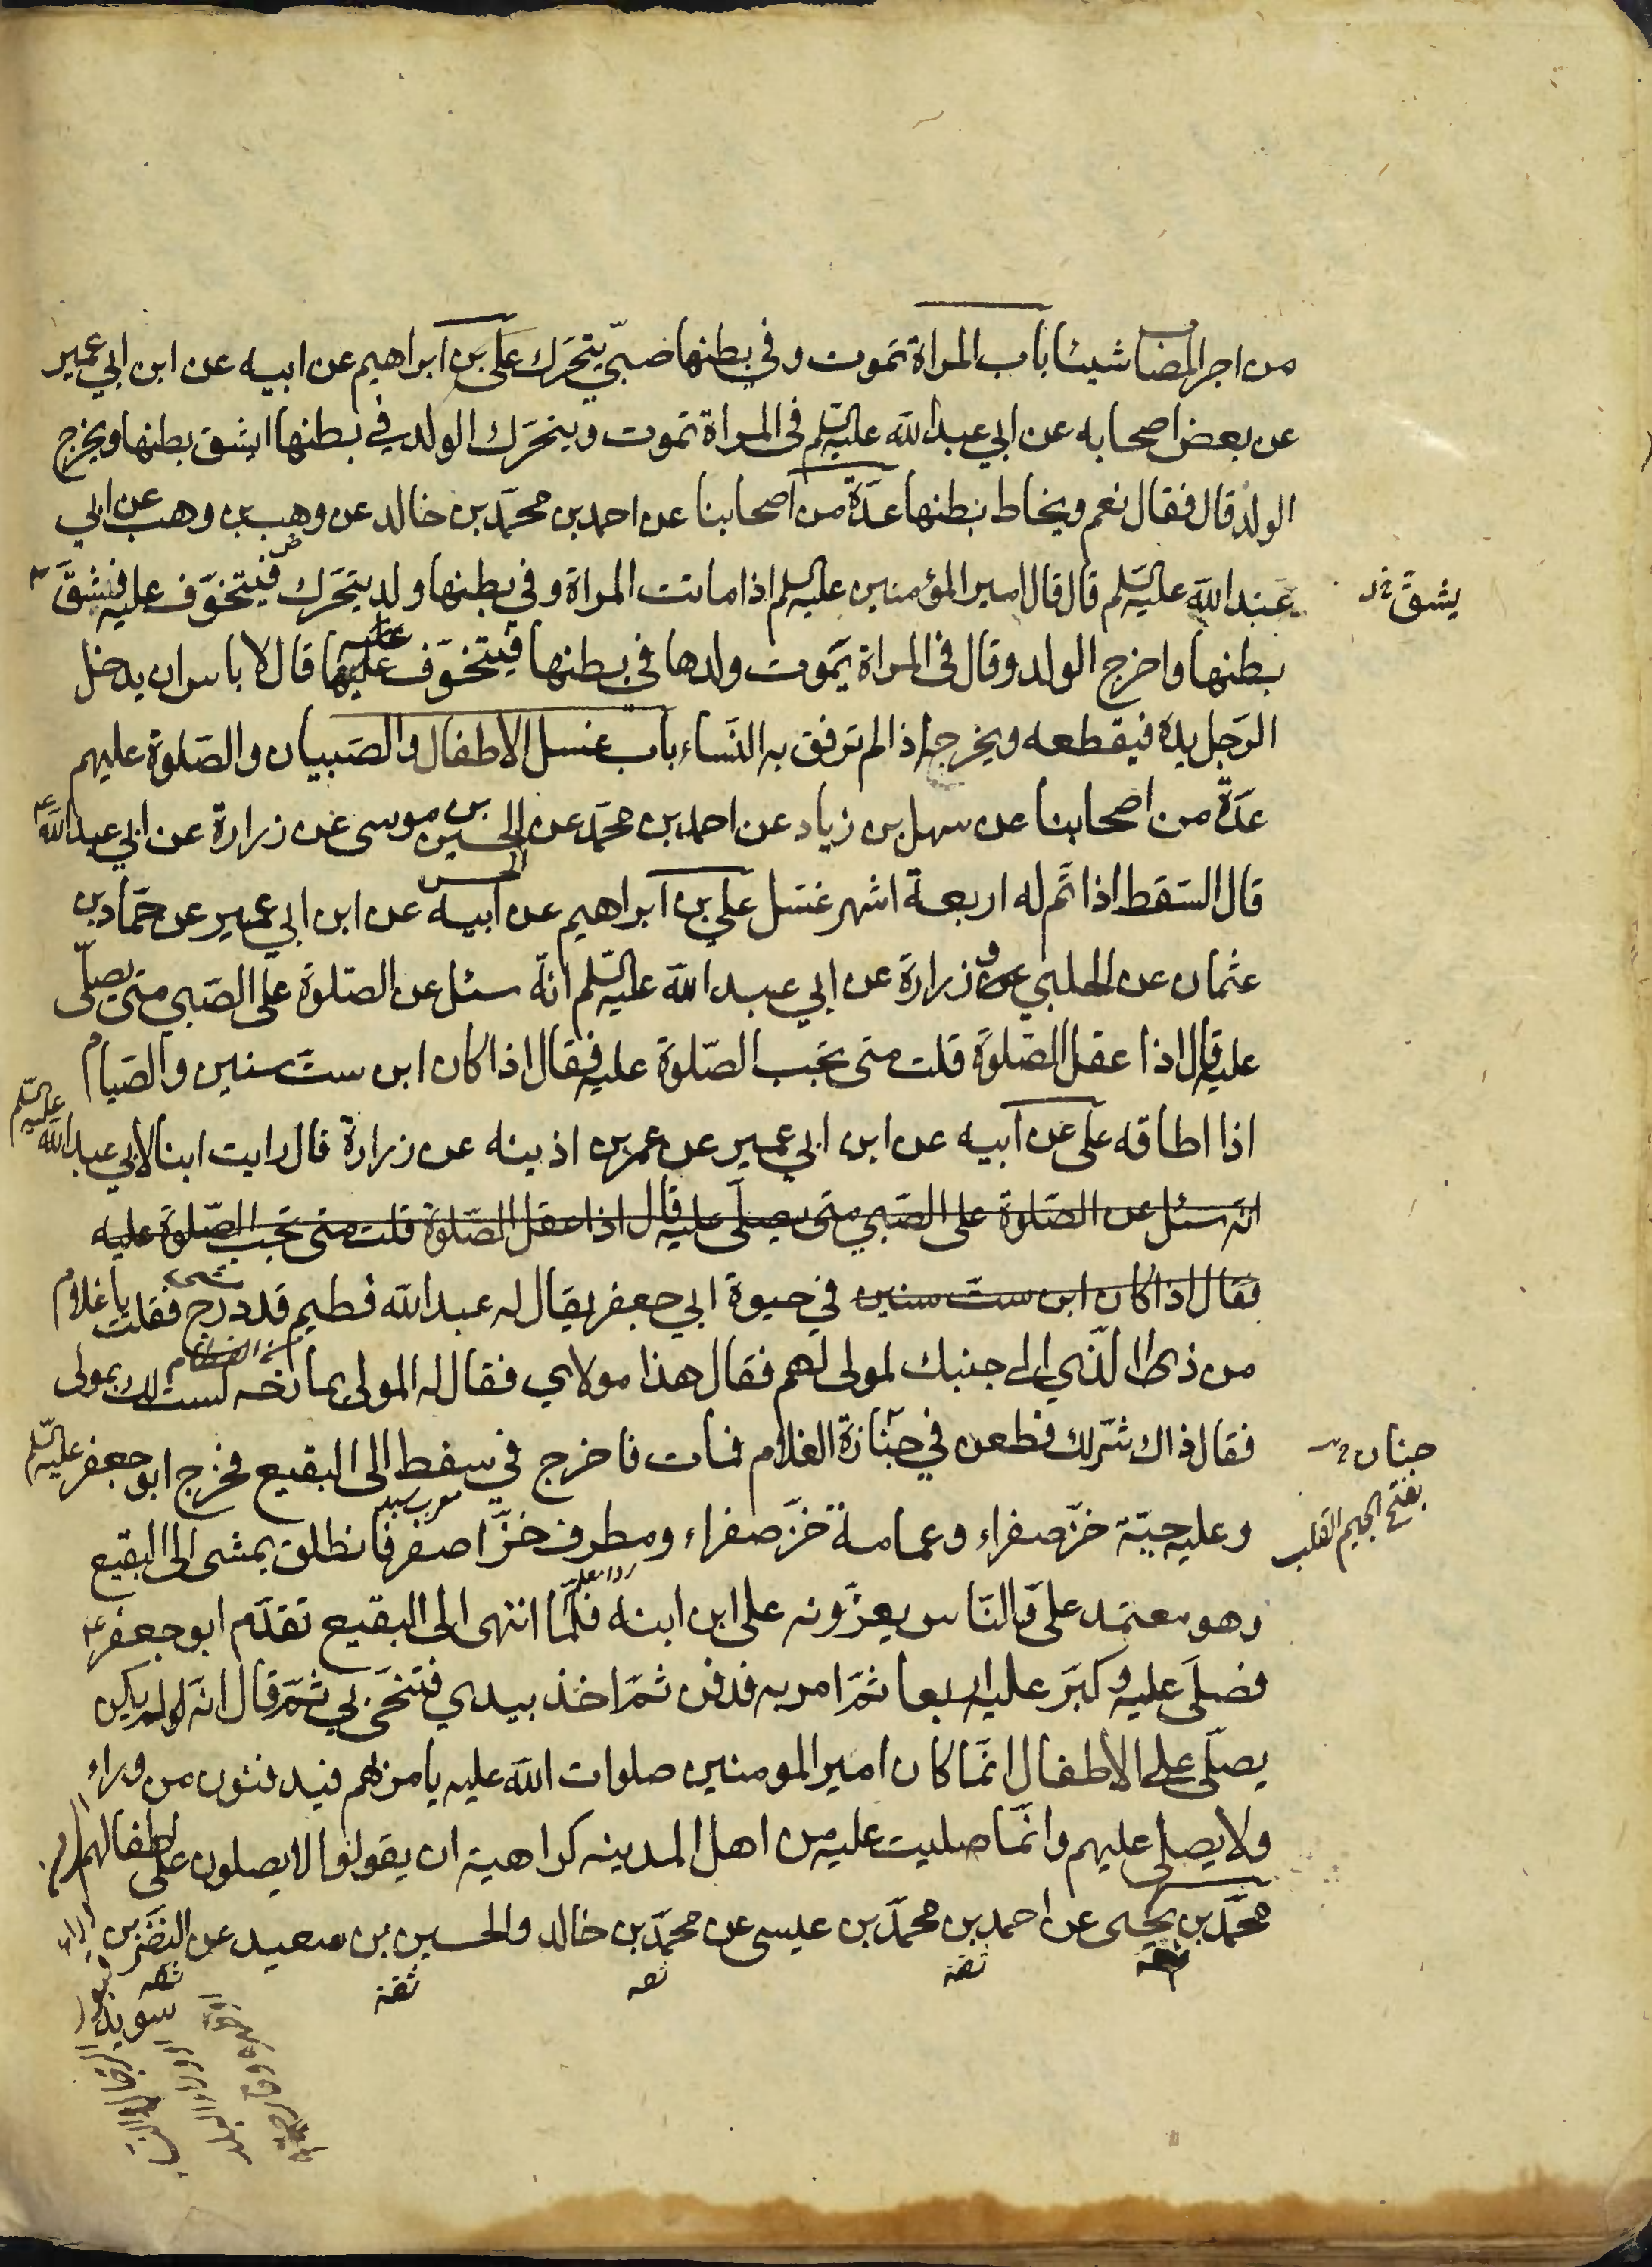 من اجر المصاب شيئا باب المراة تموت وفي بطنها صبيّ يتحرّك علي بن ابراهيم عن ابيه عن ابن ابي عمير
عن بعض اصحابه عن ابي عبد الله عليه السّلم فى المراة تموت ويتحرّك الولد في بطنها ايشق بطنها ويخرج
الولد قال فقال نعم ويخاط بطنها عدّة من اصحابنا عن احمد بن محمّد بن خالد عن وهب بن وهب عن ابي
عبد الله عليه السّلم قال قال امير المؤمنين عليه السّلم اذا ماتت المراة وفي بطنها ولد يتحرّك فيتخوّف عليه فشقّ
يشقّ
بطنها واخرج الولد وقال فى المراة يموت ولدها في بطنها فيتخوّف عليها قال لا باس ان يدخل
عليه
الرّجل يده فيقطعه ويخرجه اذا لم ترفق به النّساء باب غسل الاطفال والصّبيان والصّلوة عليهم
عدّة من اصحابنا عن سهل بن زياد عن احمد بن محمّد عن الحسين بن موسى عن زرارة عن ابي عبد الله ع
قال السّقط اذا تمّ له اربعة اشهر غسّل علي بن ابراهيم عن ابيه عن ابن ابي عمير عن حمّاد بن
عثمان عن الحلبي وزرارة عن ابي عبد الله عليه السّلم انّه سئل عن الصّلوة على الصّبي متى يصلّى
عليه قال اذا عقل الصّلوة قلت متى تجب الصّلوة عليه فقال اذا كان ابن ستّ سنين والصّيام
اذا اطاقه علي عن ابيه عن ابن ابي عمير عن عمر بن اذينه عن زرارة قال رايت ابنا لابي عبد الله عليه السّلم
انّه سئل عن الصّلوة على الصّبي متى يصلّى عليه قال اذا عقل الصّلوة قلت متى تجب الصّلوة عليه
فقال اذا كان ابن ستّ سنين في حيوة ابي جعفر يقال له عبد الله فطيم قد درج فقلت يا غلام
من ذا الّذي الى جنبك لمولى لهم فقال هذا مولاي فقال له المولى يمازحه لست لك بمولى
فقال ذاك شرّ لك فطعن في جنازة الغلام فمات فاخرج في سفط الى البقيع فخرج ابو جعفر عليه السّلم
جنان
بفتح الجيم القلب
وعليه جبّة خزّ صفراء وعمامة خزّ صفراء ومطرف خزّ اصفر فانطلق يمشى الى البقيع
وهو معتمد علىّ والنّاس يعزّونه على ابن ابنه فلمّا انتهى الى البقيع تقدّم ابو جعفر ع
فصلّى عليه وكبّر عليه اربعا ثمّ امر به فدفن ثمّ اخذ بيدي فتنحّى بي ثمّ قال انّه لم يكن
يصلّى على الاطفال انّما كان امير المومنين صلوات الله عليه يامر بهم فيدفنون من وراء
ولا يصلى عليهم وانّما صليت عليه من اهل المدينه كراهية ان يقولوا لا يصلون على اطفالهم
محمّد بن يحيى عن احمد بن محمّد بن عيسى عن محمّد بن خالد والحسين بن سعيد عن النضر بن
ثقة ثقة ثقة
سويد